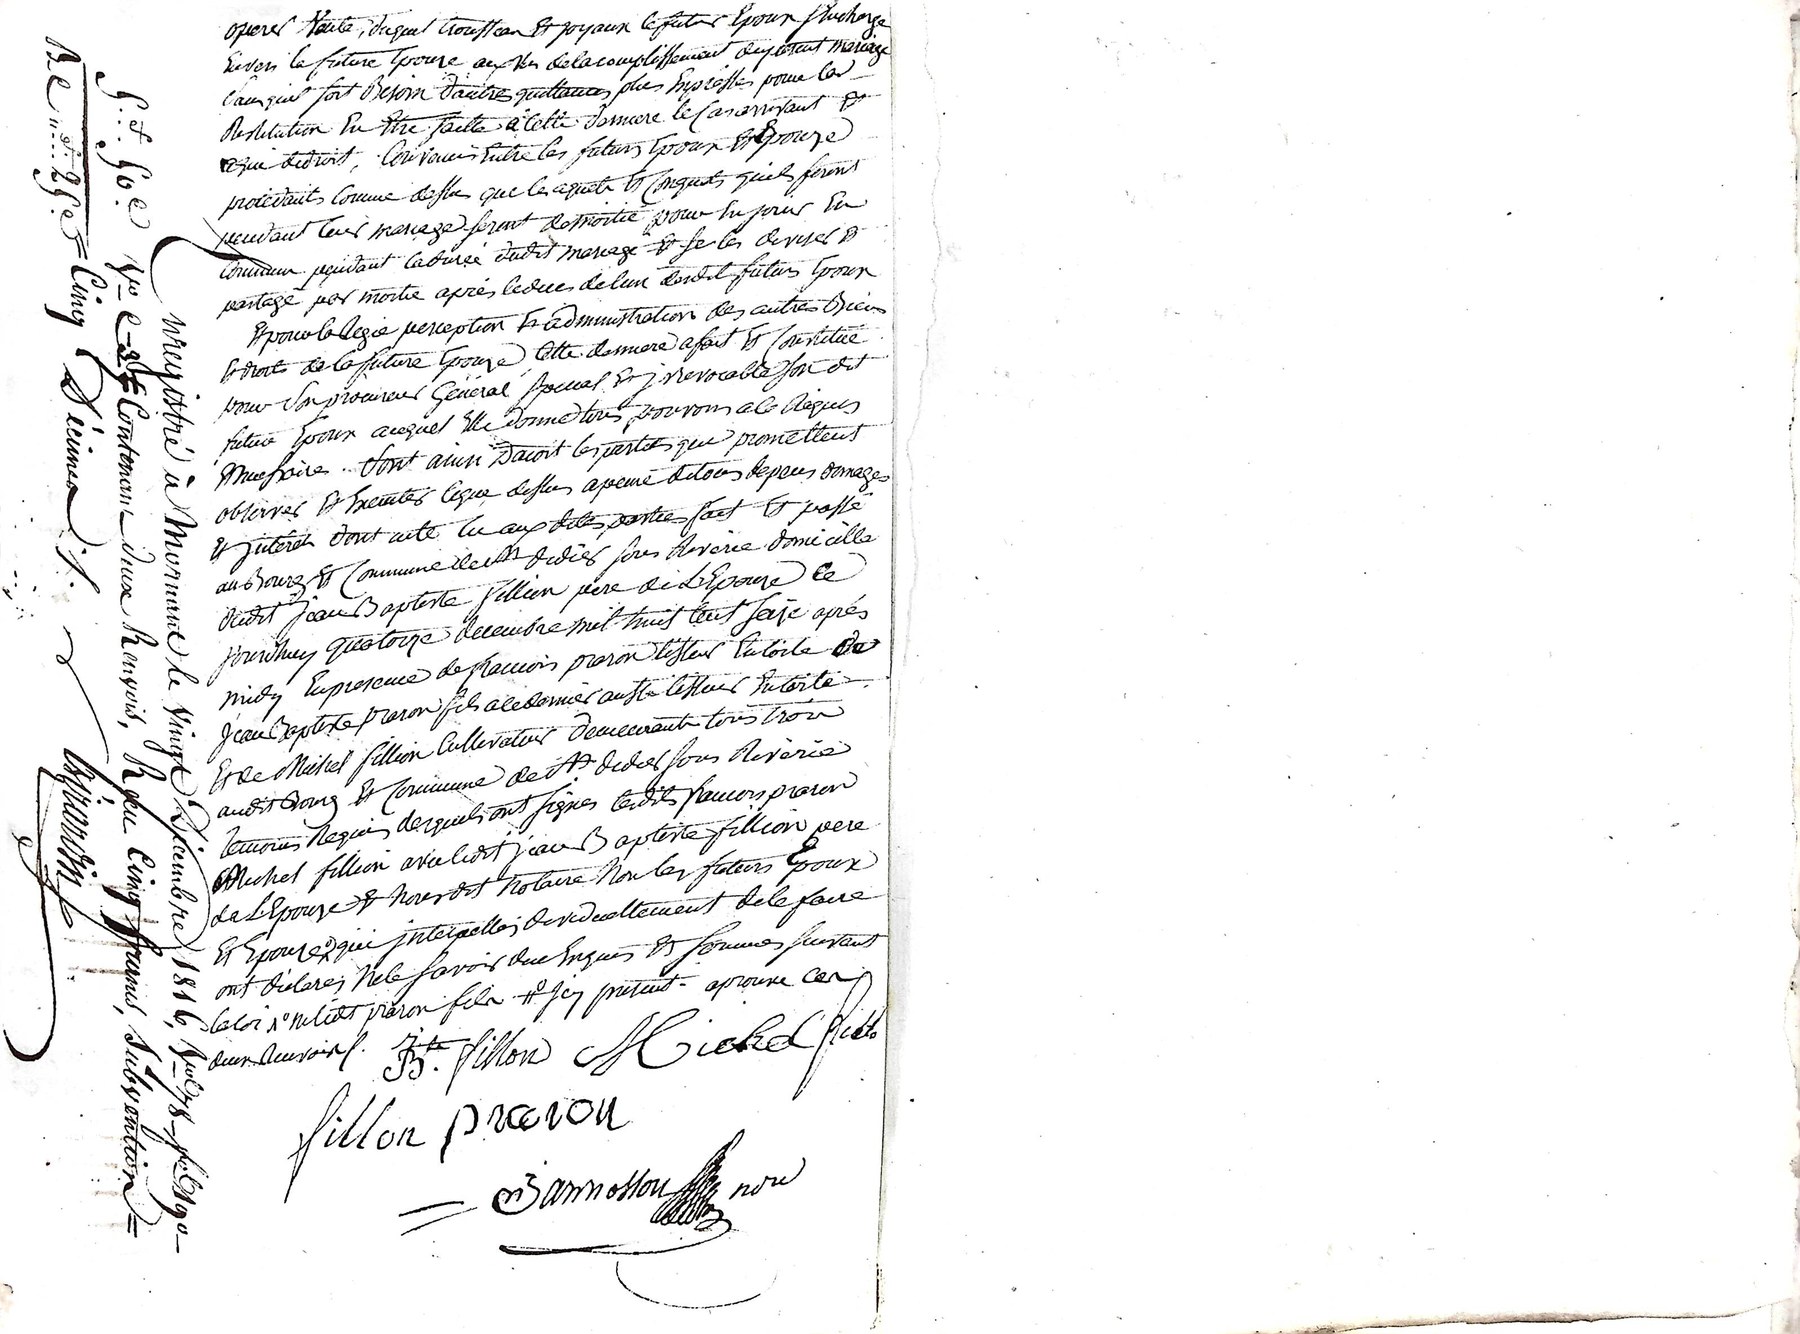 operer Vente, duquel trousseau Et joyaux le futur Epoux se charge
Envers la future Epouze aux fins de lacomplissement du present mariage
sans quil soit Besoin dautres quittances plus Expresses pour la
Restitution En Etre faitte a Cette derniere le Cas arrivant Et
aqui de droit, Convenus Entre les futurs Epoux Et Epouze
procedants Comme dessus que les aquets Et Conquets quils feront
pendant leur mariage seront de moitié pour En jouir En
Commun pendant la durée dudit mariage Et se les diviser Et
partage par moitie après le deces de lun desdit futurs Epoux
Et pour la Regie perception Et administration des autres Biens
Et droits de la future Epouze Cette derniere a fait Et Constitué
pour Son procureur Général Special Et jrrevocable Son dit
futur Epoux auquel Elle donne tous pouvoirs a ce Requis
Et necessaires. dont ainsi dacort les parties que promettent
observer Et Executer ce que dessus a peine de tous depens domages
Et jnterets dont acte lu aux dites parties fait Et passé
au Bourg Et Commune de St didier sous Riverie domicille
dudit jean Baptiste fillion pere de L'Epouze Ce
jourdhuy quatorze decembre mil huit Cent Seize après
midy En presence de francois praron tisseur En toile de
jean Baptiste praron fils a ce dernier aussi tisseur En toile
Et de Michel fillion Cultivateur demeurants tous trois
audit Bourg Et Commune de St didier sous Riverie
temoins Requis desquels ont signés lesdits francois praron
Michel fillion avec ledit jean Baptiste fillion pere
de L'Epouze Et Nous dit Notaire Non les futurs Epoux
Et Epouze qui jnterpellés dividuellement de le faire
ont déclarés Ne le Savoir de ce Enquis Et Sommes Suivant
la loi Ni ledit praron fils present aprouvé
deux Renvois
Bte. fillon Michel
fillon praron
Bannossou nore
Enregistré à Mornant le vingt Décembre 1816, Vol 78 fo 190
Contenant deux Renvois, Reçu Cinq francs, Subvention
Cinq Décimes